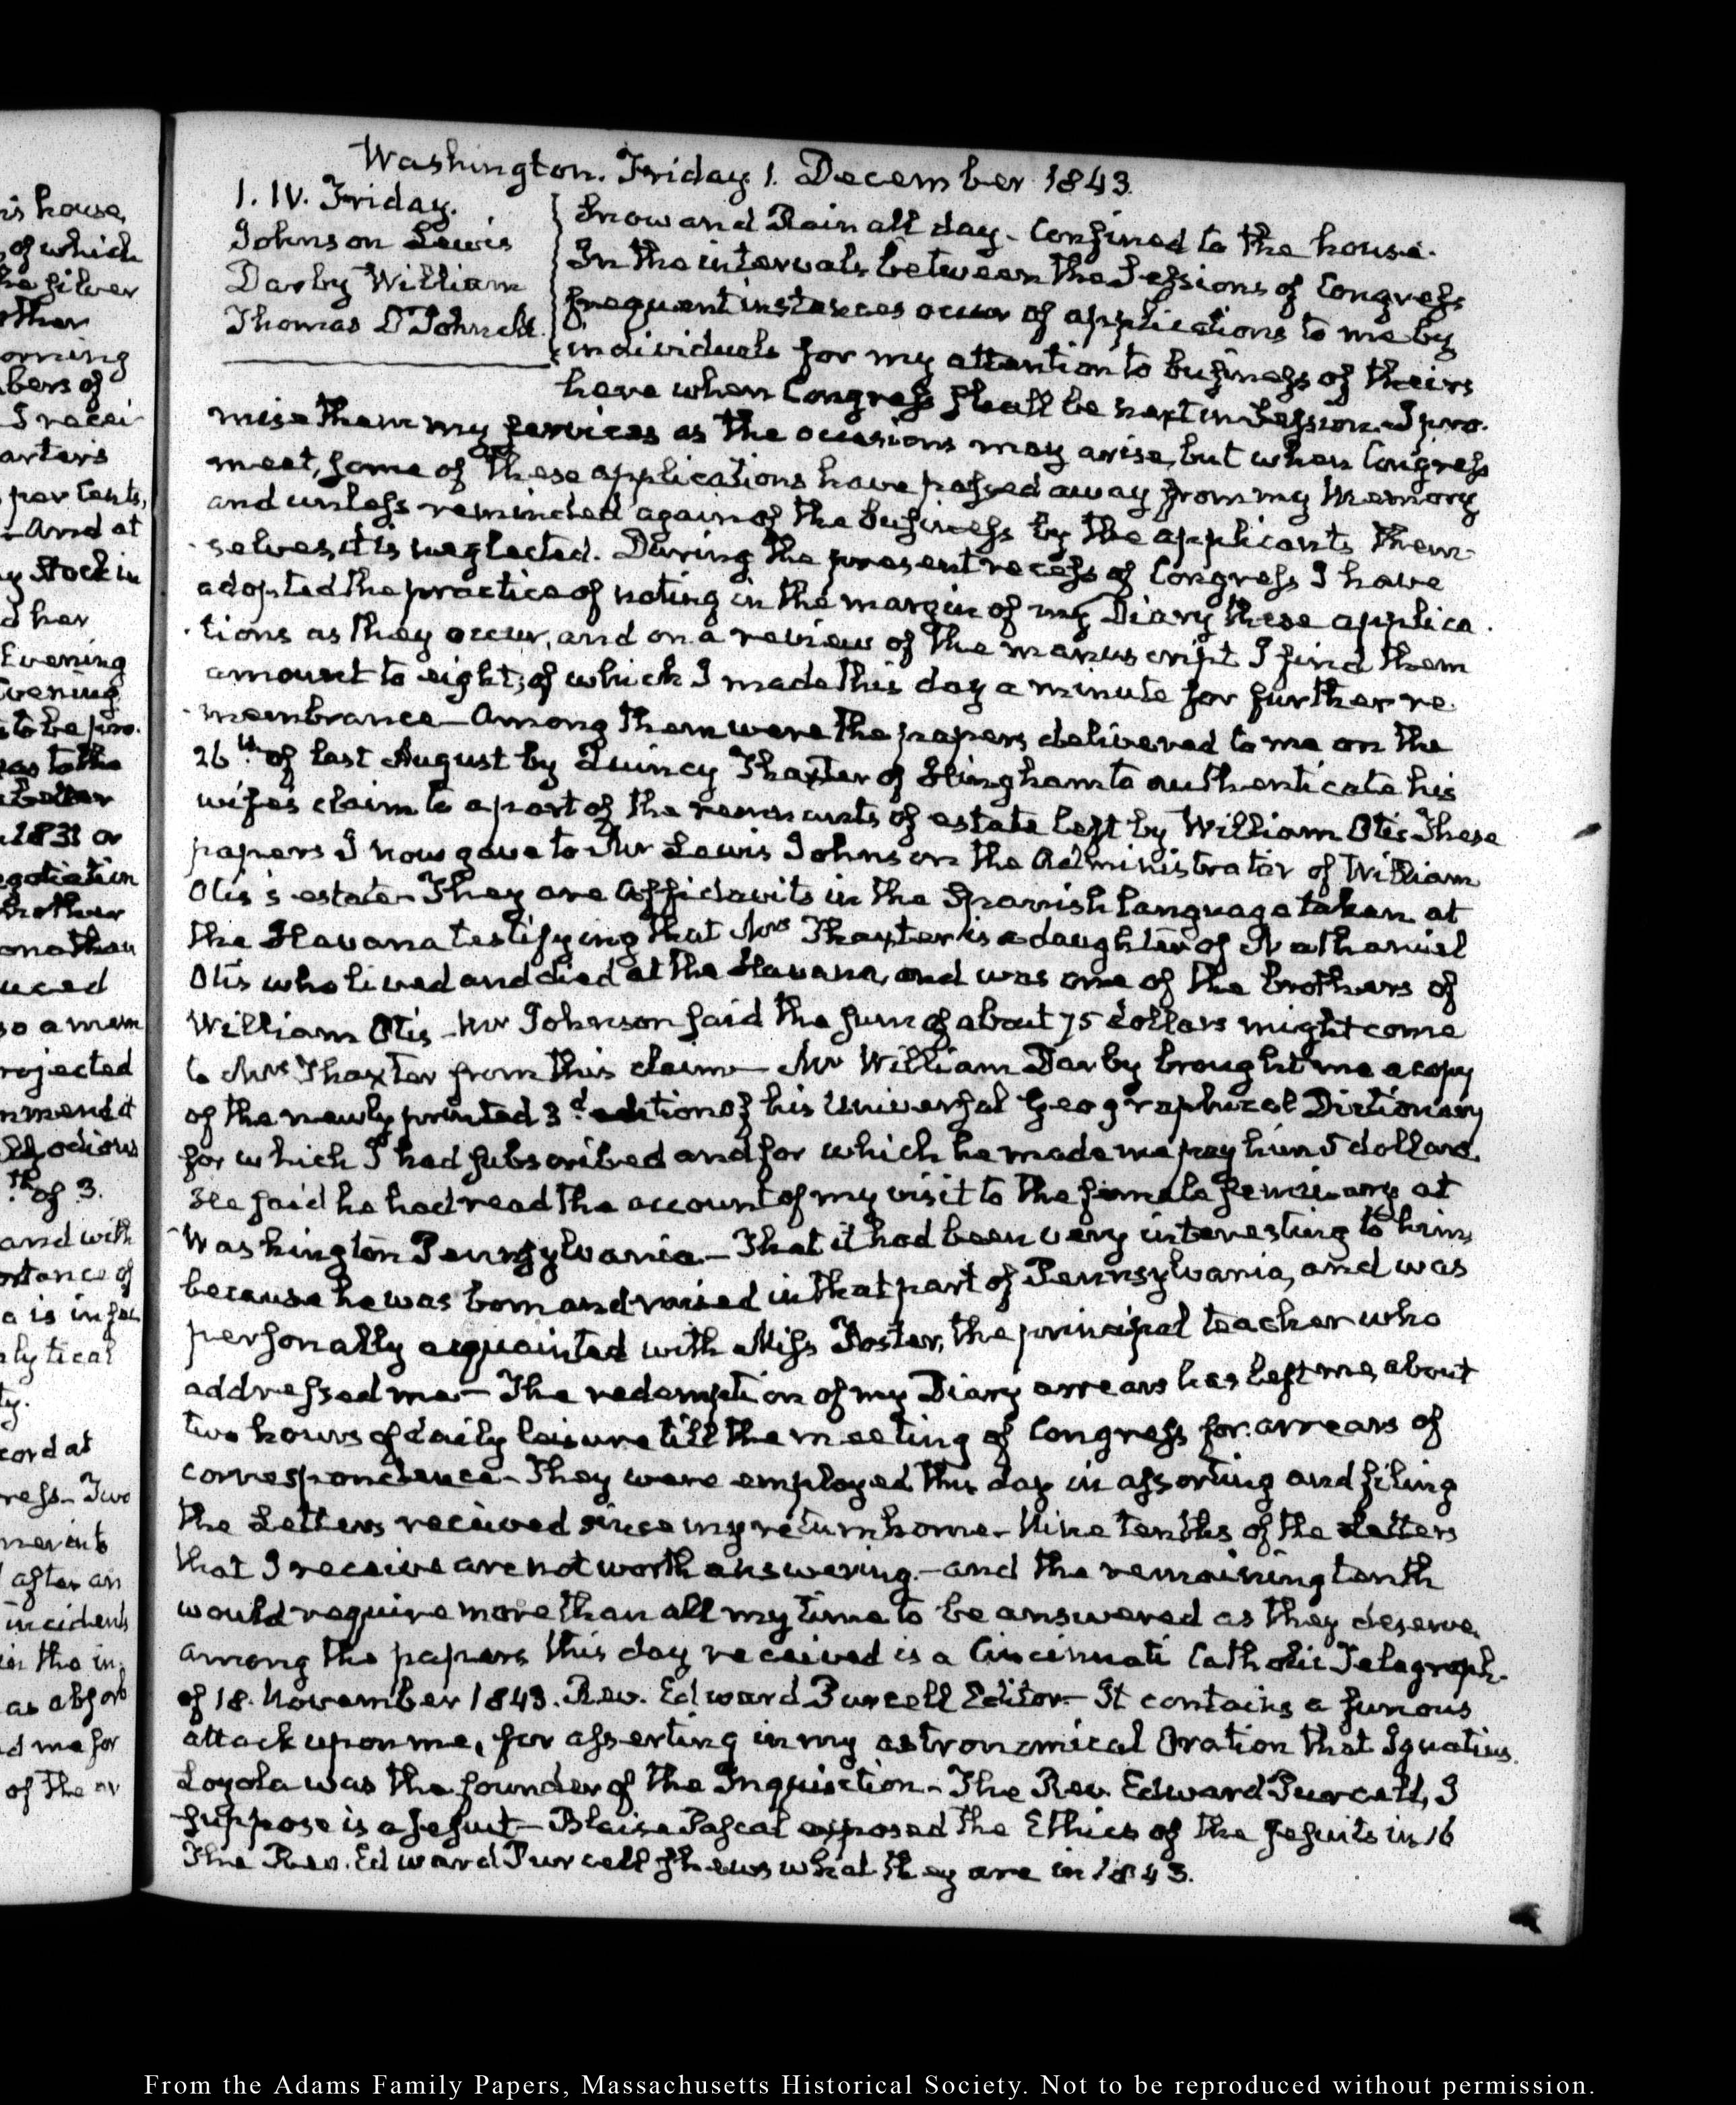 Washington. Friday 1. December 1843.
1. IV. Friday.
Johnson Lewis
Darby William
Thomas
Snow and Rain all day. Confined to the house.
In the intervals between the Sessions of Congress
frequent instances occur of applications to me by
individuals for my attention to business of theirs
here when Congress shall be next in Session. I pro-
mise them my services as the occasions may arise, but when Congress
meet, some of these applications have passed away from my memory
and unless reminded again of the business by the applicants them-
selves, it is neglected. During the present recess of Congress I have
adopted the practice of noting in the margin of my Diary these applica-
tions as they occur, and on a review of the manuscript I find them
amount to eight; of which I made this day a minute for further re-
membrance— Among them were the papers delivered to me on the
26th of last August by Quincy Thaxter of Hingham to authenticate his
wife's claim to a part of the remnants of estate left by William Otis These
papers I now gave to Mr Lewis Johnson the Administrator of William
Otis's estate— They are Affidavits in the Spanish language taken at
the Havana testifying that Mrs Thaxter is a daughter of Nathaniel
Otis who lived and died at the Havana, and was one of the brothers of
William Otis— Mr Johnson said the sum of about 75 dollars might come
to Mrs Thaxter from this claim— Mr William Darby brought me a copy
of the newly printed 3d edition of his Universal Geographical Dictionary
for which I had subscribed and for which he made me pay him 5 dollars.
He said he had read the account of my visit to the female seminary at
Washington Pennsylvania— That it had been very interesting to him,
because he was born and raised in that part of Pennsylvania, and was
personally acquainted with Miss Foster, the principal teacher who
addressed me— The redemption of my Diary arrears has left me about
two hours of daily leisure till the meeting of Congress for arrears of
correspondence— They were employed this day in assorting and filing
the Letters received since my return home— Nine tenths of the Letters
that I receive are not worth answering.— and the remaining tenth
would require more than all my time to be answered as they deserve.
Among the papers this day received is a Cincinnati Catholic Telegraph
of 18. November 1843. Rev. Edward Purcell Editor— It contains a furious
attack upon me, for asserting in my astronomical Oration that Ignatius
Loyola was the founder of the Inquisition— The Rev. Edward Purcell, I
suppose is a Jesuit— Blaise Pascal exposed the Ethics of the Jesuits in 16
The Rev. Edward Purcell shews what they are in 1843.
his house,
of which
other
bers of
I recei-
arters
per Cents,
And at
Stock in
her
Evening
to be pro-
1831 or
brother
rejected
odious
th of 3.
and with
a is in
cord at
Two
after an
incidents
d me for
of the
From the Adams Family Papers, Massachusetts Historical Society. Not to be reproduced without permission.